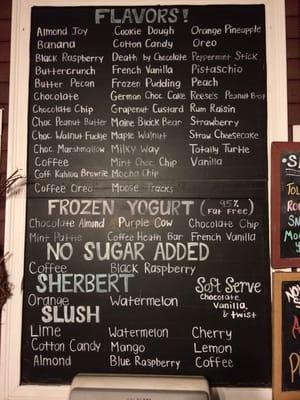 FLAVORS!
Almond Joy Cookie Dough Orange Pineapple
Banana Cotton Candy Oreo
Black Raspberry Death by Chocolate Peppermint Stick
Buttercrunch French Vanilla Pistaschio
Butter Pecan Frozen Pudding Peach
Chocolate German Choc Cake Reese's Peanut
Chocolate Chip Grapenut Custard Rum Raisin
Choc Peanut Butter Maine Black Bear Strawberry
Choc Walnut Fudge Maple Walnut Straw Cheesecake
Choc Marshmallow Milky Way Totally Turtle
Coffee Mint Choc Chip Vanilla
Coff Kahlua Brownie Mocha Chip
Coffee Oreo Moose Tracks
FROZEN YOGURT (95% FAT FREE)
Chocolate Almond Purple Cow Chocolate Chip
Mint Pattie Coffee Heath Bar French Vanilla
NO SUGAR ADDED
Coffee Black Raspberry
SHERBERT
Orange Watermelon
Soft Serve
Chocolate,
Vanilla,
& twist
SLUSH
Lime Watermelon Cherry
Cotton Candy Mango Lemon
Almond Blue Raspberry Coffee